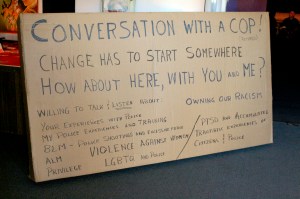 CONVERSATION WITH A COP!
CHANGE HAS TO START SOMEWHERE
HOW ABOUT HERE, WITH YOU AND ME?
WILLING TO TALK & LISTEN ABOUT
OWNING OUR RACISM
YOUR EXPERIENCES WITH POLICE
MY POLICE EXPERIENCES AND TRAINING
BLM - POLICE SHOOTING AND EXCESSIVE FORCE
ALM
PRIVILEGE
VIOLENCE AGAINST WOMEN
LGBTQ AND POLICE
PTSD AND ACCUMULATED
TRAUMATIC EXPERIENCES OF
CITIZENS & POLICE